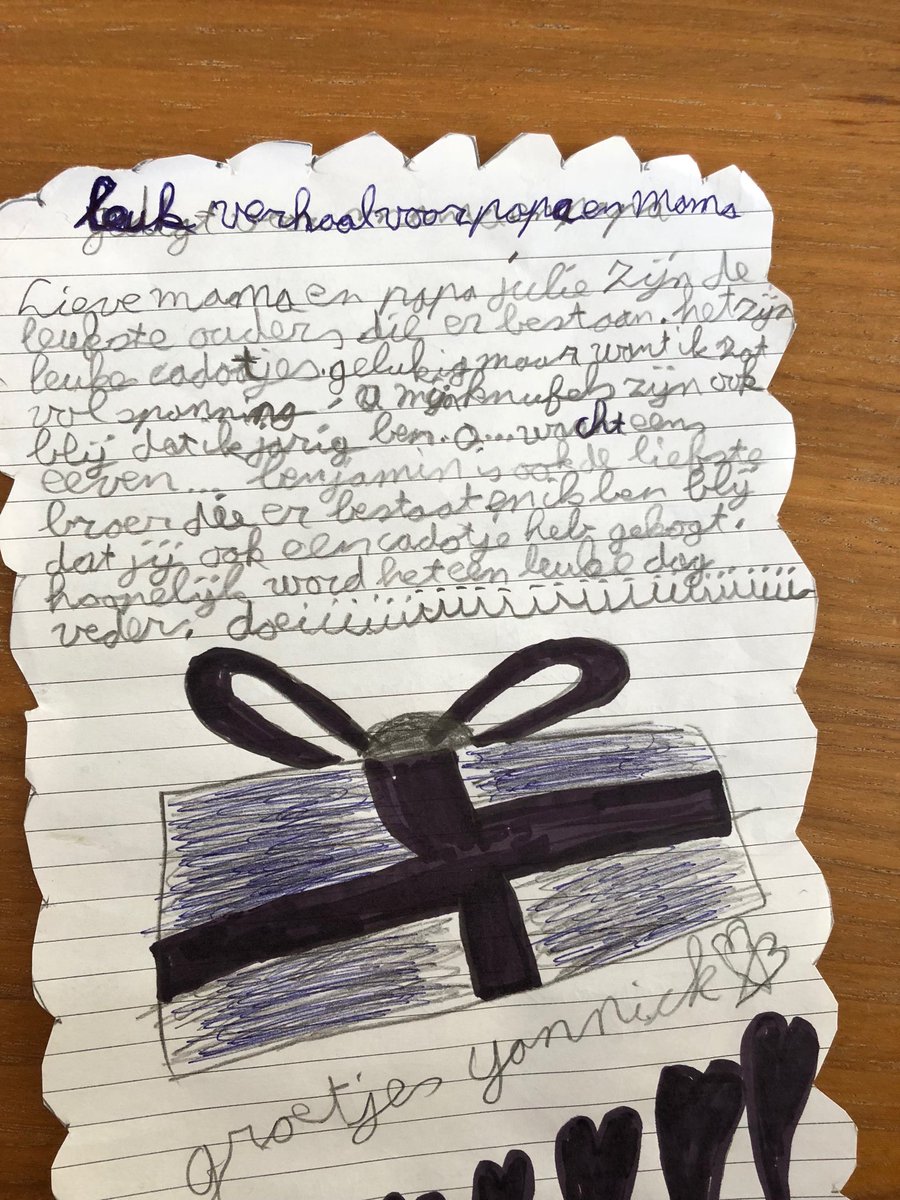 leuk verhaal voor papa en mama
Lieve mama en papa julie zijn de
leukste ouders die er bestaan. het zijn
leuke cadotjes. gelukig maar want ik zat
vol spanning! O mijn knufels zijn ook
blij dat ik jarig ben. O... wacht eens
eeven... benjamin is ook de liefste
broer die er bestaat en ik ben blij
dat jij ook een cadotje heb gekogt.
hoopelijk word het een leuke dag
veder. doeiiiiiiiiiiiiiiiiiiiiiiiiiiiii
groetjes yannick